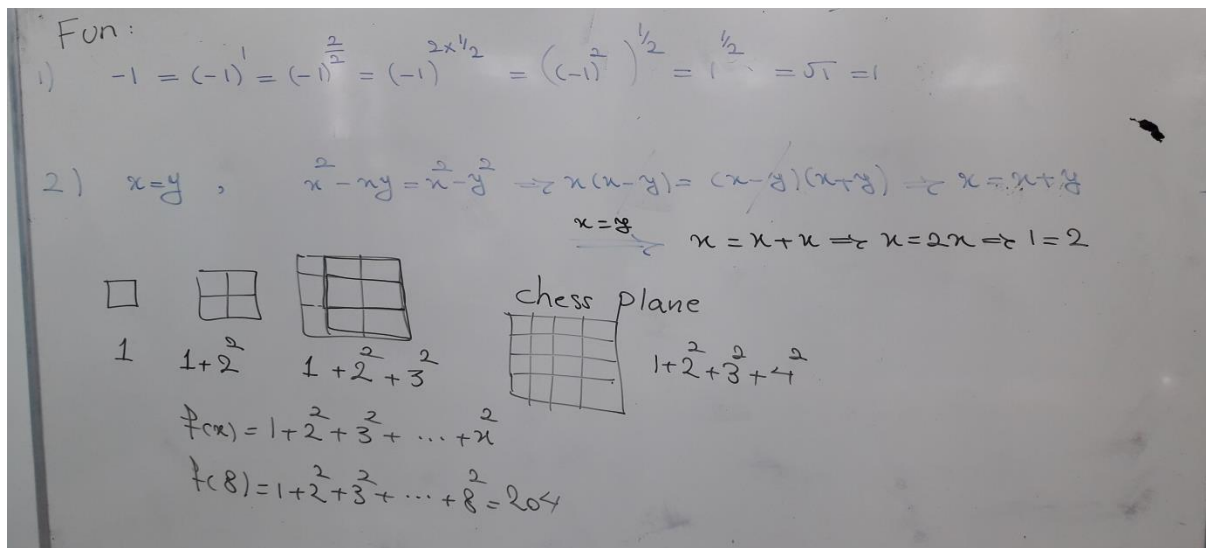 Fun:
1) -1 = (-1)^1 = (-1)^(2/2) = (-1)^(2×1/2) = ((-1)^2)^(1/2) = 1^(1/2) = √1 = 1
2) x=y , x²-xy = x²-y² ⇒ x(x-y) = (x-y)(x+y) ⇒ x = x+y
x=y ⇒ x = x+x ⇒ x=2x ⇒ 1=2
chess plane
1
1+2²
1+2²+3²
1+2²+3²+4²
f(x) = 1+2²+3²+ ... +x²
f(8) = 1+2²+3²+ ... +8² = 204